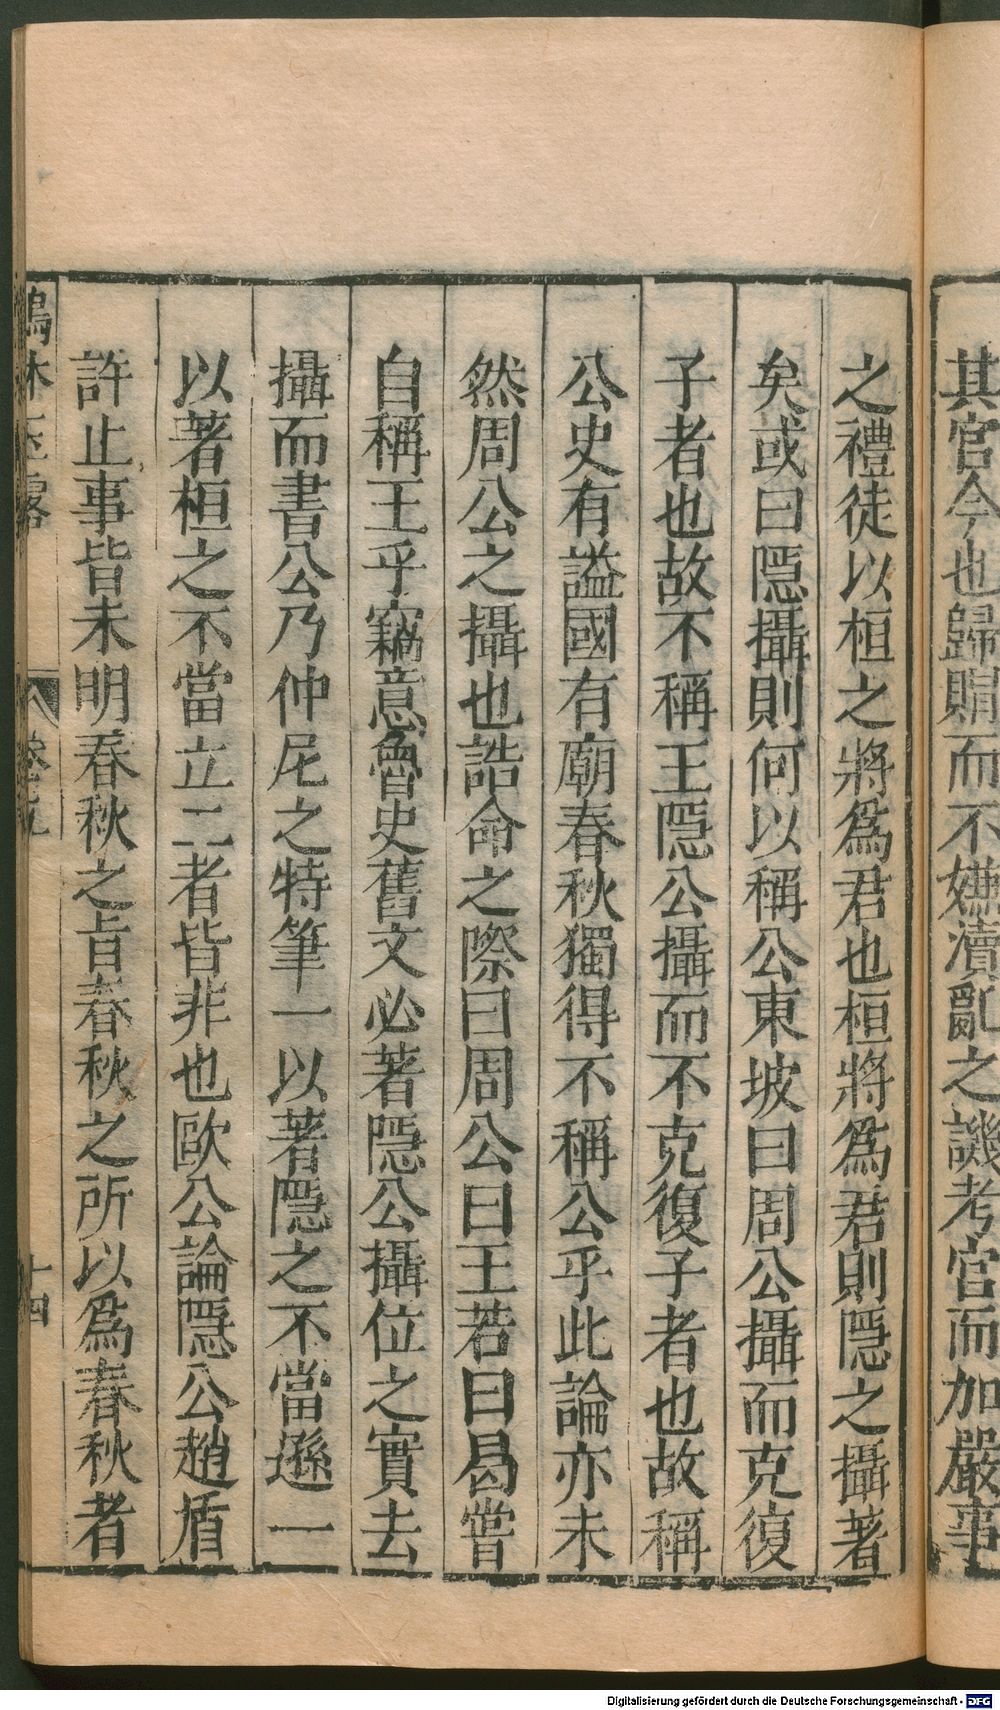 其官今也歸賵而不嫌瀆亂之譏考宫而加嚴事
之禮徒以桓之將爲君也桓將爲君則隠之攝著
矣或曰隠攝則何以稱公東坡曰周公攝而克復
子者也故不稱王隠公攝而不克復子者也故稱
公史有謚國有廟春秋獨得不稱公乎此論亦未
然周公之攝也誥命之際曰周公曰王若曰曷嘗
自稱王乎竊意魯史舊文必著隠公攝位之實去
攝而書公乃仲尼之特筆一以著隠之不當遜一
以著桓之不當立二者皆非也歐公論隠公趙盾
許止事皆未明春秋之旨春秋之所以爲春秋者
鶴林玉露
卷之九
十四
Digitalisierung gefördert durch die Deutsche Forschungsgemeinschaft - DFG